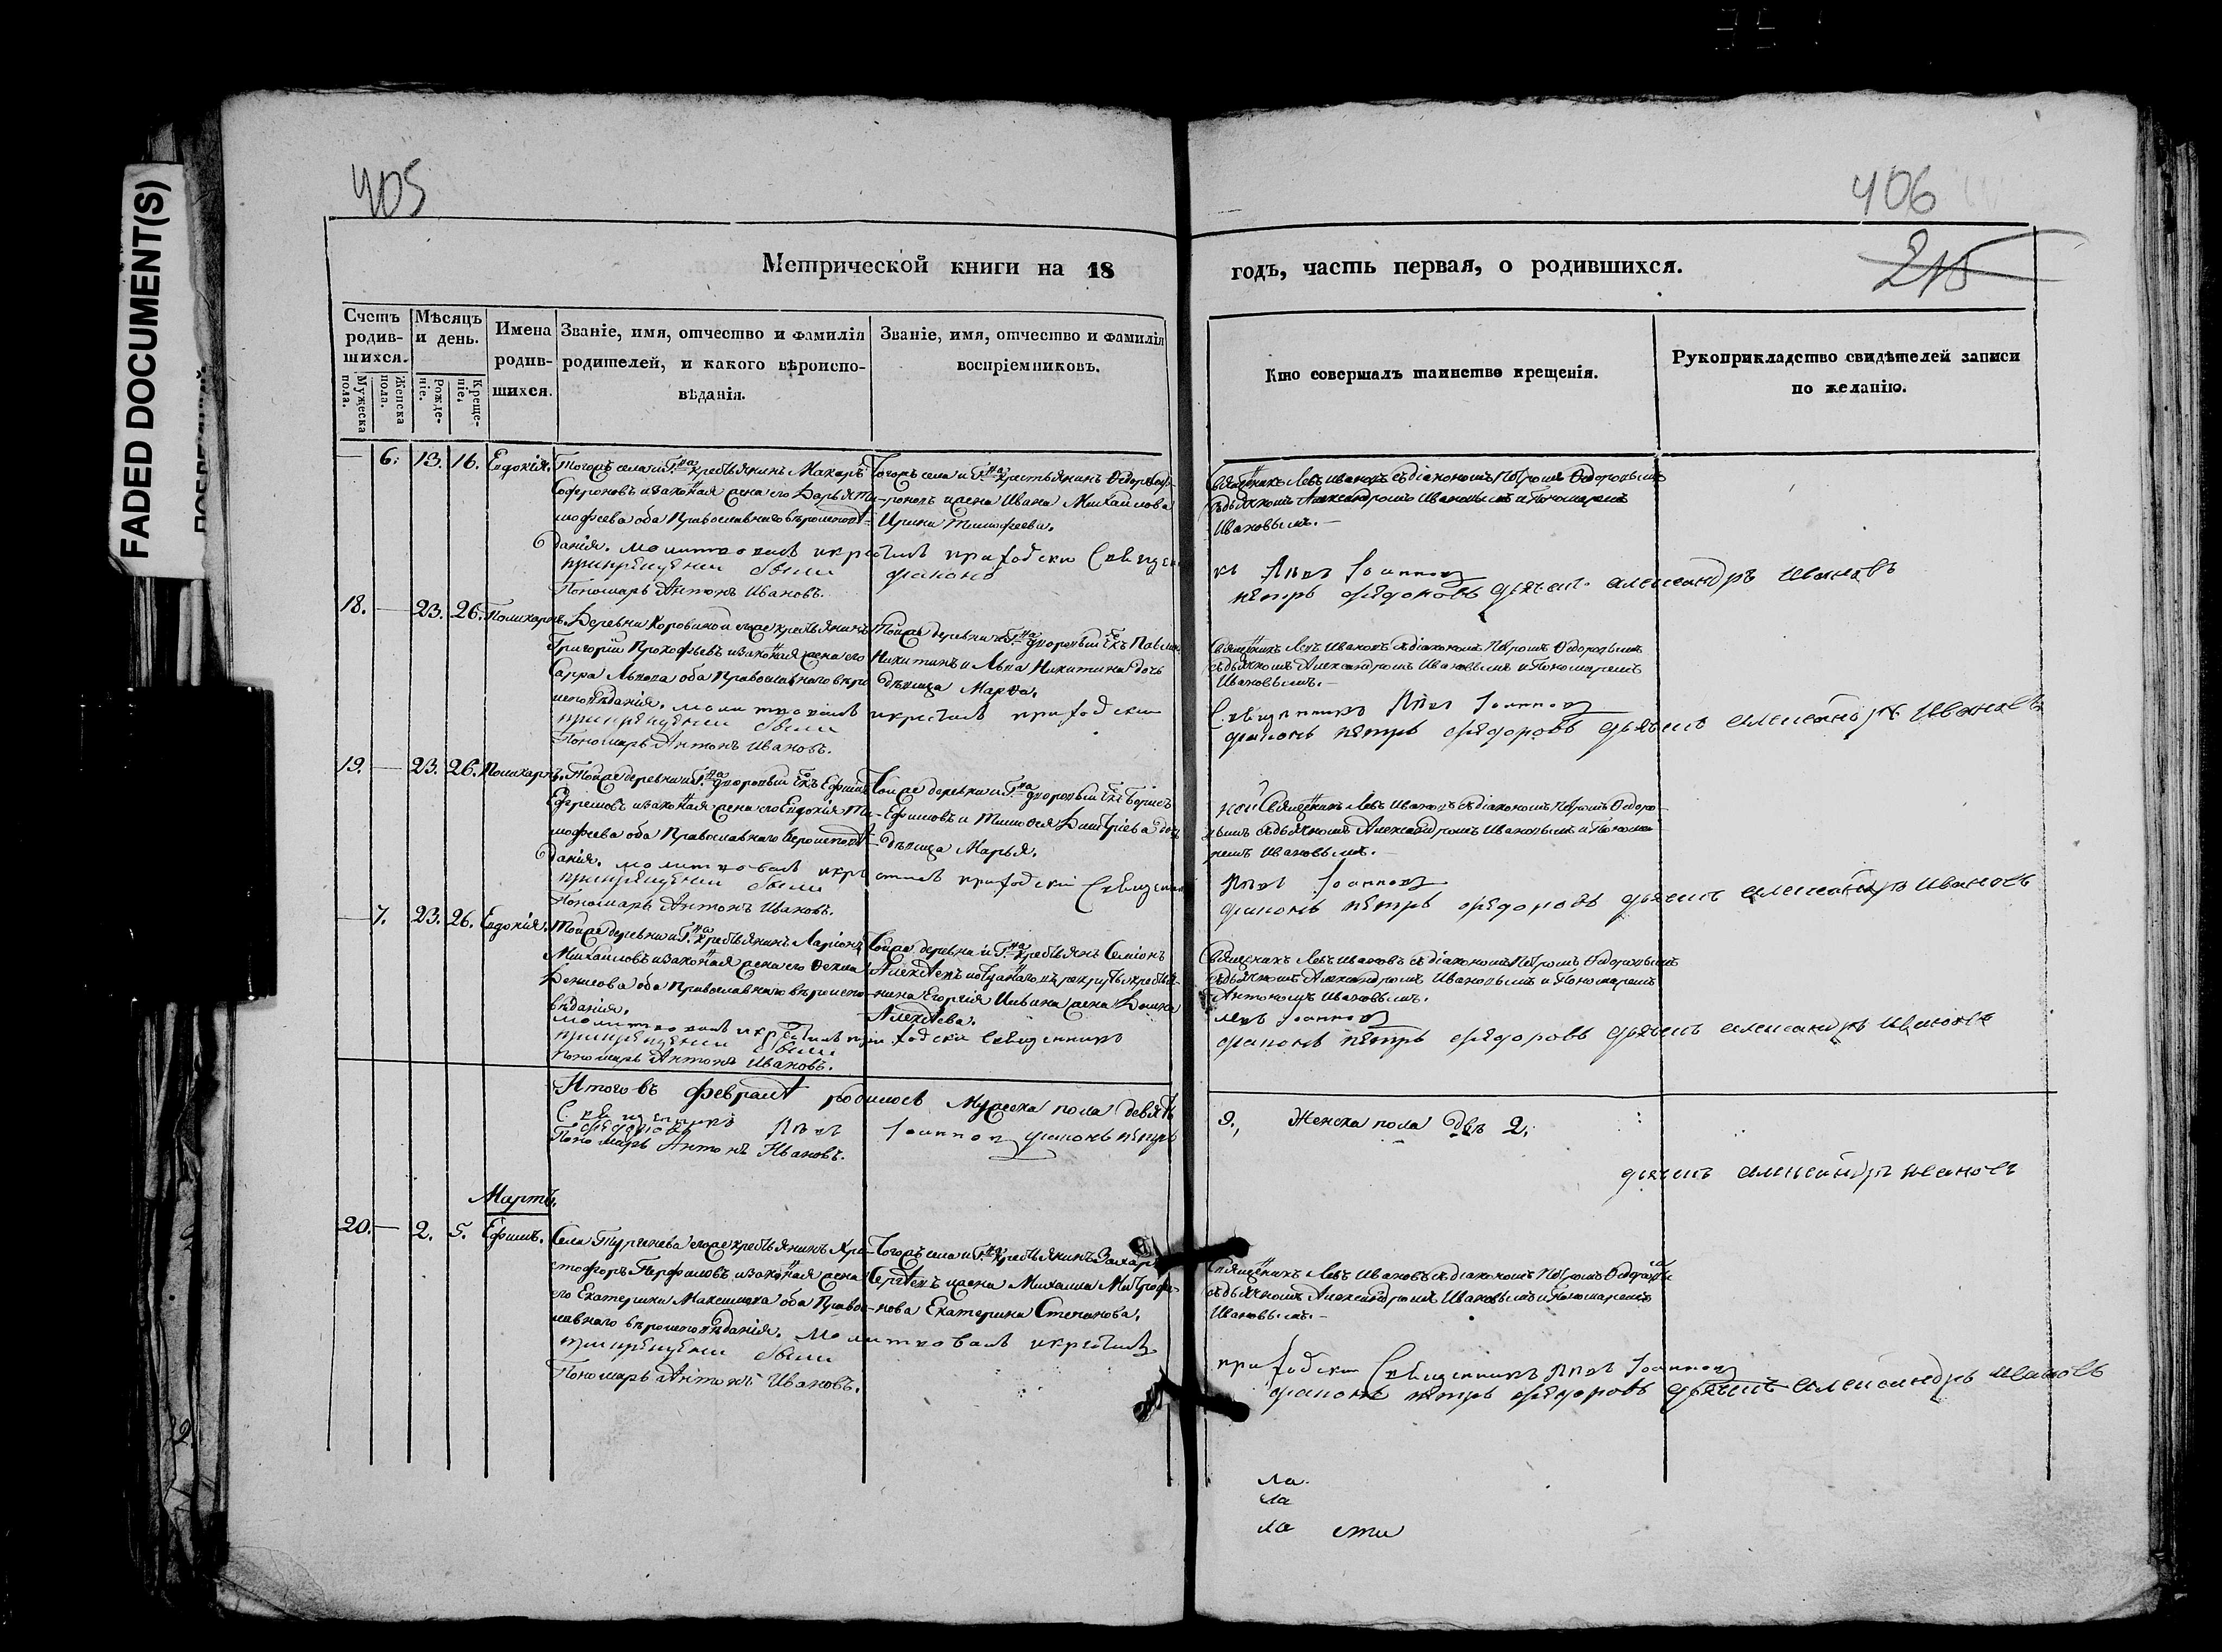 FADED DOCUMENT(S)
405
406
215
Метрической книги на 18
годъ, часть первая, о родившихся.
Счетъ родив-шихся.
Мужеска пола.
Женска пола.
Мѣсяцъ и день.
Рожде-ніе.
Креще-ніе.
Имена родив-шихся.
Званіе, имя, отчество и фамилія
родителей, и какого вѣроиспо-
вѣданія.
Званіе, имя, отчество и фамилія
воспріемниковъ.
Кто совершалъ таинство крещенія.
Рукоприкладство свидѣтелей записи
по желанію.
6. 13. 16. Евдокія.
Тогожъ села и Г.на кресьянинъ Макаръ
Софроновъ и законая жена его Дарья Ти-
мофеева оба Православнаго вѣроисповѣ-
данія. молитвовалъ и крестилъ приходски Священ
при крещении были
Пономарь Антонъ Ивановъ.
Тогожъ села и Г.на крестьянинъ Ѳедоръ
и жена Ивана Михайлова
Ирина Тимофеева.
диаконъ
Священикъ Левъ Ивановъ съ діакономъ Петромъ Ѳедоровымъ
съ дьячкомъ Александромъ Ивановымъ и Пономаремъ
Ивановымъ.
къ Левъ Іоанновъ
петръ федоровъ дьячекъ александръ ивановъ
18. — 23. 26. Поликарпъ.
Деревни Коровиной кресьянинъ
Григорій Прокофьевъ и законая жена его
Сарра Львова оба Православнаго вѣро
исповѣданія. молитвовалъ и крестилъ приходски
при крещении были
Пономарь Антонъ Ивановъ.
Тойже деревни и Г.на дворовый
Никитинъ и Льва Никитина дочь
дѣвица Марѳа.
Священикъ Левъ Ивановъ съ діакономъ Петромъ Ѳедоровымъ
съ дьячкомъ Александромъ Ивановымъ и Пономаремъ
Ивановымъ.
Священникъ Левъ Іоанновъ
диаконъ петръ федоровъ дьячекъ александръ ивановъ
19. — 23. 26. Поликарпъ.
Тойже деревни и Г.на дворовый Ефимъ
Ефремовъ и законая жена его Евдокія Ти-
мофеева оба Православнаго Вероисповѣ-
данія. молитвовалъ и крестилъ приходскій Священ
при крещении были
Пономарь Антонъ Ивановъ.
Тойже деревни и Г.на дворовый Борисъ
Ефимовъ и Тимоѳея Дмитріева дочь
дѣвица Марья.
Священикъ Левъ Ивановъ съ діакономъ Петромъ Ѳедоро-
вымъ съ дьячкомъ Александромъ Ивановымъ и Понома-
ремъ Ивановымъ.
Левъ Іоанновъ
диаконъ петръ федоровъ дьячекъ александръ ивановъ
— 7. 23. 26. Евдокія.
Тойже деревни и Г.на кресьянинъ Ларіонъ
Михайловъ и законая жена его Ѳекла
Денисова оба Православнаго вѣроиспо-
вѣданія.
молитвовалъ и крестилъ приходски Священникъ
при крещении были
Пономарь Антонъ Ивановъ.
Тойже деревни и Г.на кресьянъ Семіонъ
Алексѣевъ
Егоргія Ильина жена
Алексѣева.
Священикъ Левъ Ивановъ съ діакономъ Петромъ Ѳедоровымъ
съ дьячкомъ Александромъ Ивановымъ и Пономаремъ
Антономъ Ивановымъ.
Левъ Іоанновъ
диаконъ петръ федоровъ дьячекъ александръ ивановъ
Итого въ февралѣ родилось Мужеска пола девять 9., Женска пола двѣ 2.
Священникъ Левъ Іоанновъ диаконъ петръ
федоровъ
Пономарь Антонъ Ивановъ.
дьячекъ александръ ивановъ
Мартъ.
20. — 2. 5. Ефимъ.
Села Тургенева кресьянинъ Хри-
стофоръ Перфиловъ и законая жена
его Екатерина Максимова оба Право-
славнаго вѣроисповѣданія. Молитвовалъ и крестилъ
при крещении были
Пономарь Антонъ Ивановъ.
Тогожъ села и Г.на кресьянинъ Захаръ
Сергѣевъ и жена Михаила Митрофа-
нова Екатерина Степанова.
Священикъ Левъ Ивановъ съ діакономъ Петромъ Ѳедоровы
съ дьячкомъ Александромъ Ивановымъ и Пономаремъ
Ивановымъ.
приходски Священникъ Левъ Іоанновъ
диаконъ петръ федоровъ дьячекъ александръ ивановъ
ла.
ла
ла сти